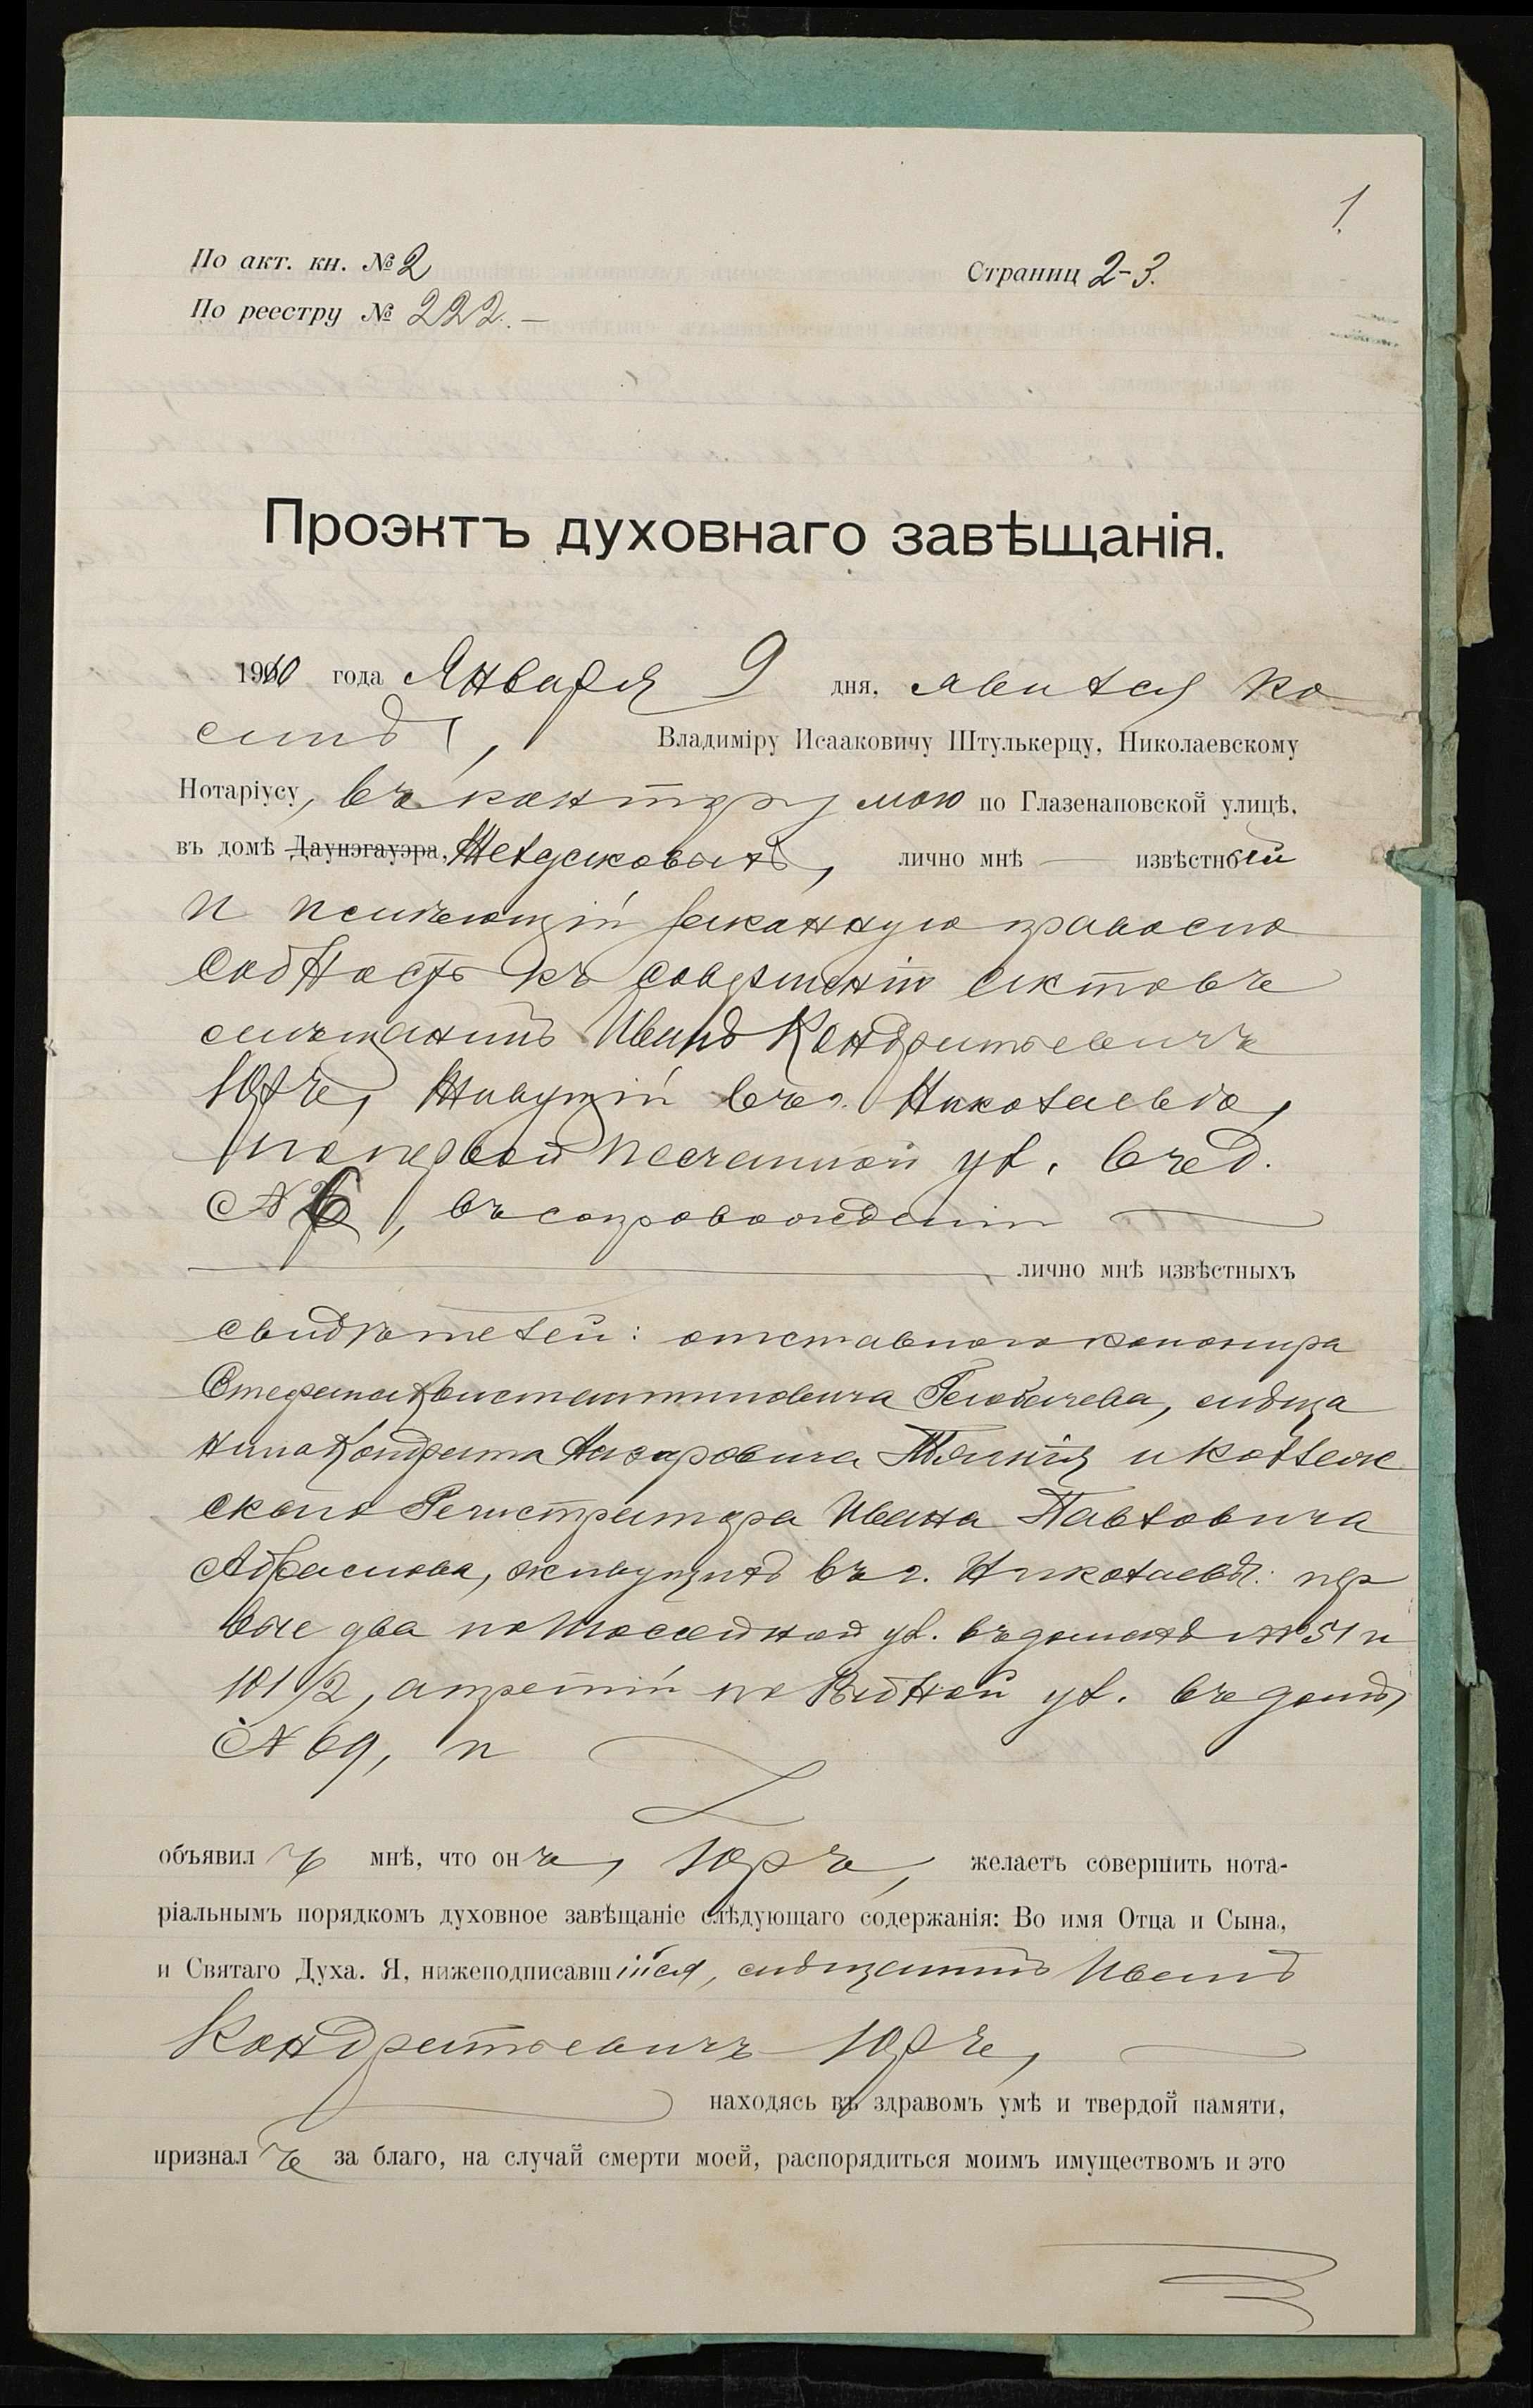 1
По акт. кн. № 2
Страниц 2-3.
По реестру № 222.
Проэктъ духовнаго завѣщанія.
1910 года Января 9 дня, явился ко
мнѣ, Владиміру Исааковичу Штулькерцу, Николаевскому
Нотаріусу, въ контору мою по Глазенаповской улицѣ,
въ домѣ Даунэгауэра, лично мнѣ извѣстный
и имѣющій законную правоспо
собность къ совершенію актовъ
мѣщанинъ Иванъ Кондратьевичъ
Юръ, живущій въ г. Николаевѣ,
по первой песчанной ул. въ д.
№ 6, въ сопровожденіи
лично мнѣ извѣстныхъ
свидѣтелей: отставного канонира
Стефана Константиновича мѣща
нина Кондрата Назаровича и Коллеж
скаго Регистратора Ивана Павловича
Абрамова, живущихъ въ г. Николаевѣ: пер
вые два по Шоссейной ул. въ домахъ №№ 51 и
101/2, а третій по ул. въ домѣ
№ 69, и
объявилъ мнѣ, что онъ, Юръ, желаетъ совершить нота-
ріальнымъ порядкомъ духовное завѣщаніе слѣдующаго содержанія: Во имя Отца и Сына,
и Святаго Духа. Я, нижеподписавшійся, мѣщанинъ Иванъ
Кондратьевичъ Юръ,
находясь въ здравомъ умѣ и твердой памяти,
призналъ за благо, на случай смерти моей, распорядиться моимъ имуществомъ и это